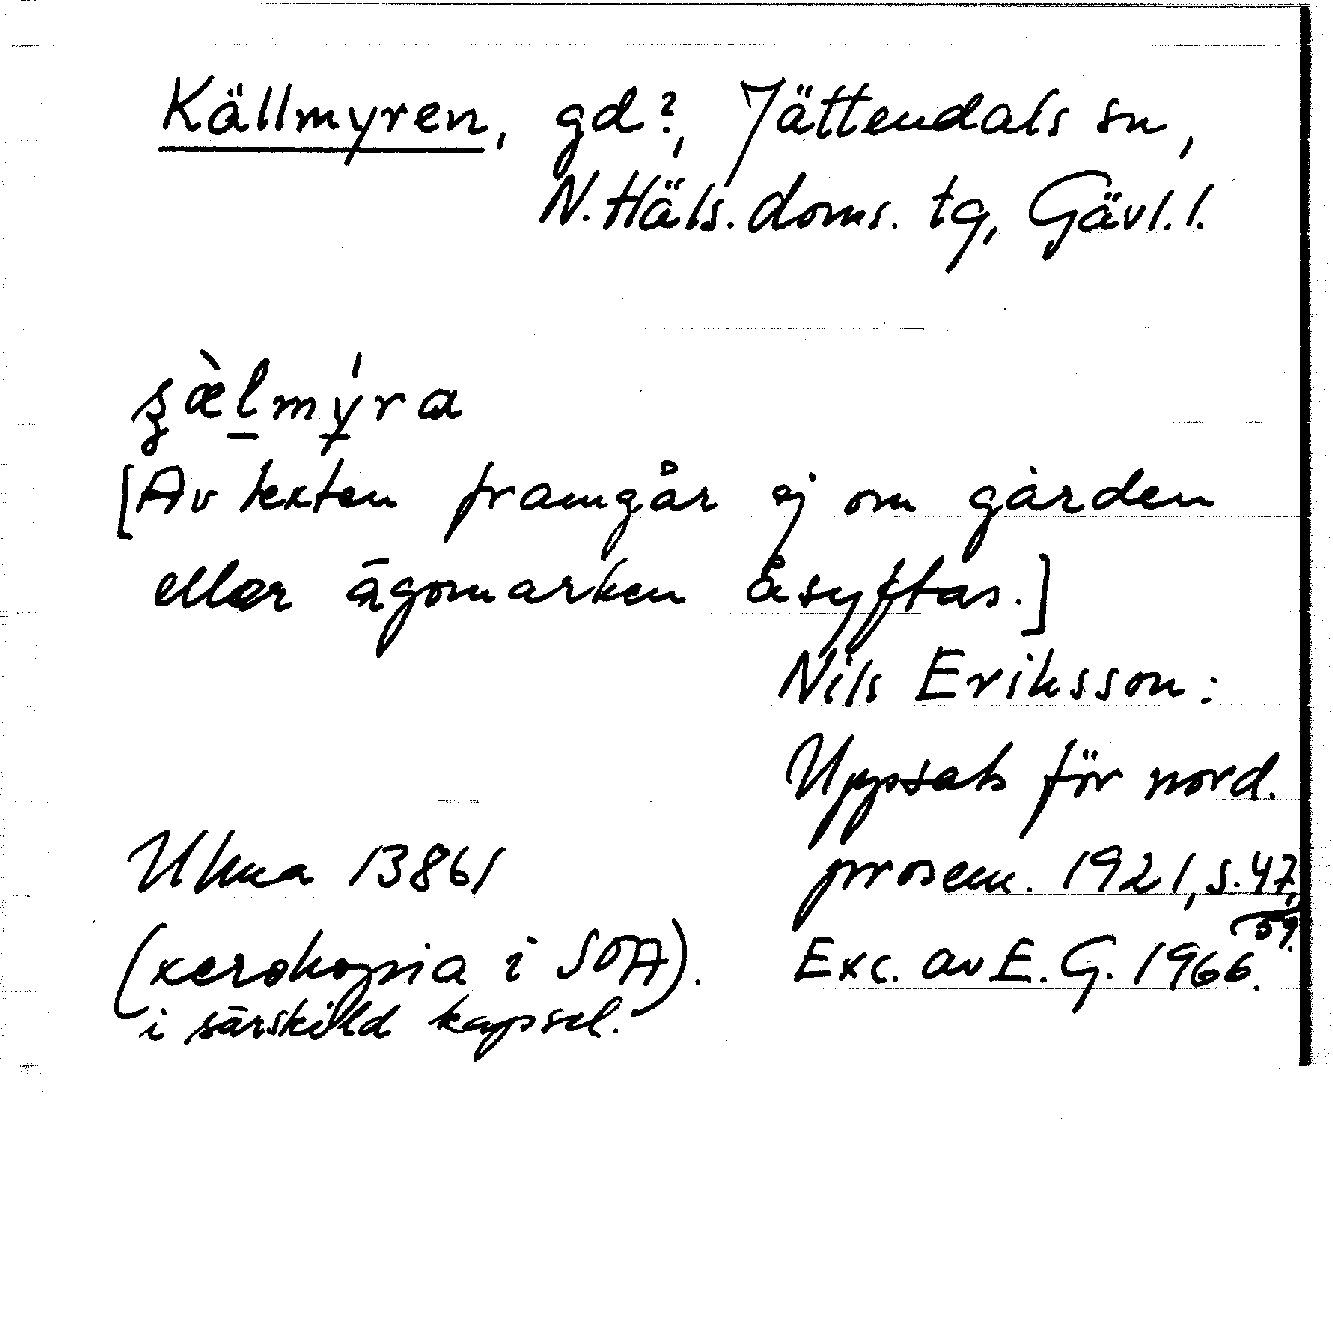 Källmyren, gd?, Jättendals sn,
N. Häls. doms. tg, Gävl. l.
[Av texten framgår ej om gården
eller ägomarken åsyftas.]
Nils Eriksson:
Uppsats för nord.
prosem. 1921, s. 47, 59.
Exc. av E. G. 1966.
Ulma 13861
(xerokopia i SOA).
i särskild kapsel.